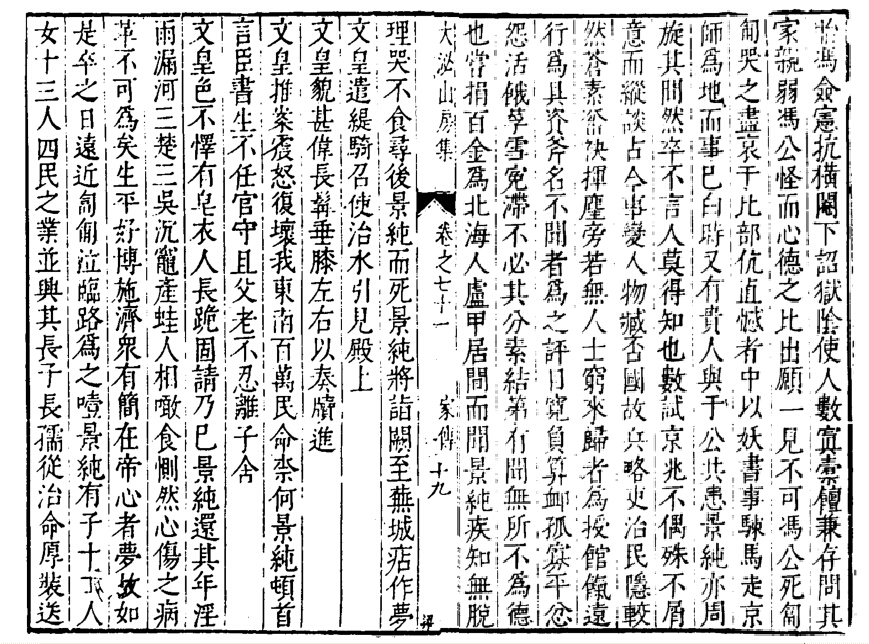 於馮僉憲抗橫閹下詔獄陰使人數寘橐饘兼存問其
家親弱馮公怪而心德之比出願一見不可馮公死匍
匐哭之盡哀于比部伉直憾者中以妖書事騋馬走京
師爲地而事已白時又有貴人與于公共患景純亦周
旋其間然卒不言人莫得知也數試京兆不偶殊不屑
意而縱談古今事變人物臧否國故兵略吏治民隱較
然蒼素奮袂揮麈旁若無人士窮來歸者爲授館餼遠
行爲具資斧名不聞者爲之評目寬負算卹孤寡平忿
怨活餓莩雪寃滯不必其分素結第有聞無所不爲德
也嘗捐百金爲北海人盧甲居間而聞景純疾知無脫
大泌山房集 卷之七十一 家傳 十九
理哭不食尋後景純而死景純將詣闕至蕪城痁作夢
文皇遣緹騎召使治水引見殿上
文皇貌甚偉長髯垂膝左右以奏牘進
文皇推案震怒復壞我東南百萬民命柰何景純頓首
言臣書生不任官守且父老不忍離子舍
文皇色不懌有皂衣人長跪固請乃已景純還其年淫
雨漏河三楚三吳沉竈產蛙人相噉食惻然心傷之病
革不可爲矣生平好博施濟衆有簡在帝心者夢故如
是卒之日遠近匍匐泣臨路爲之噎景純有子十丁人
女十三人四民之業並興其長子長孺從治命厚裝送